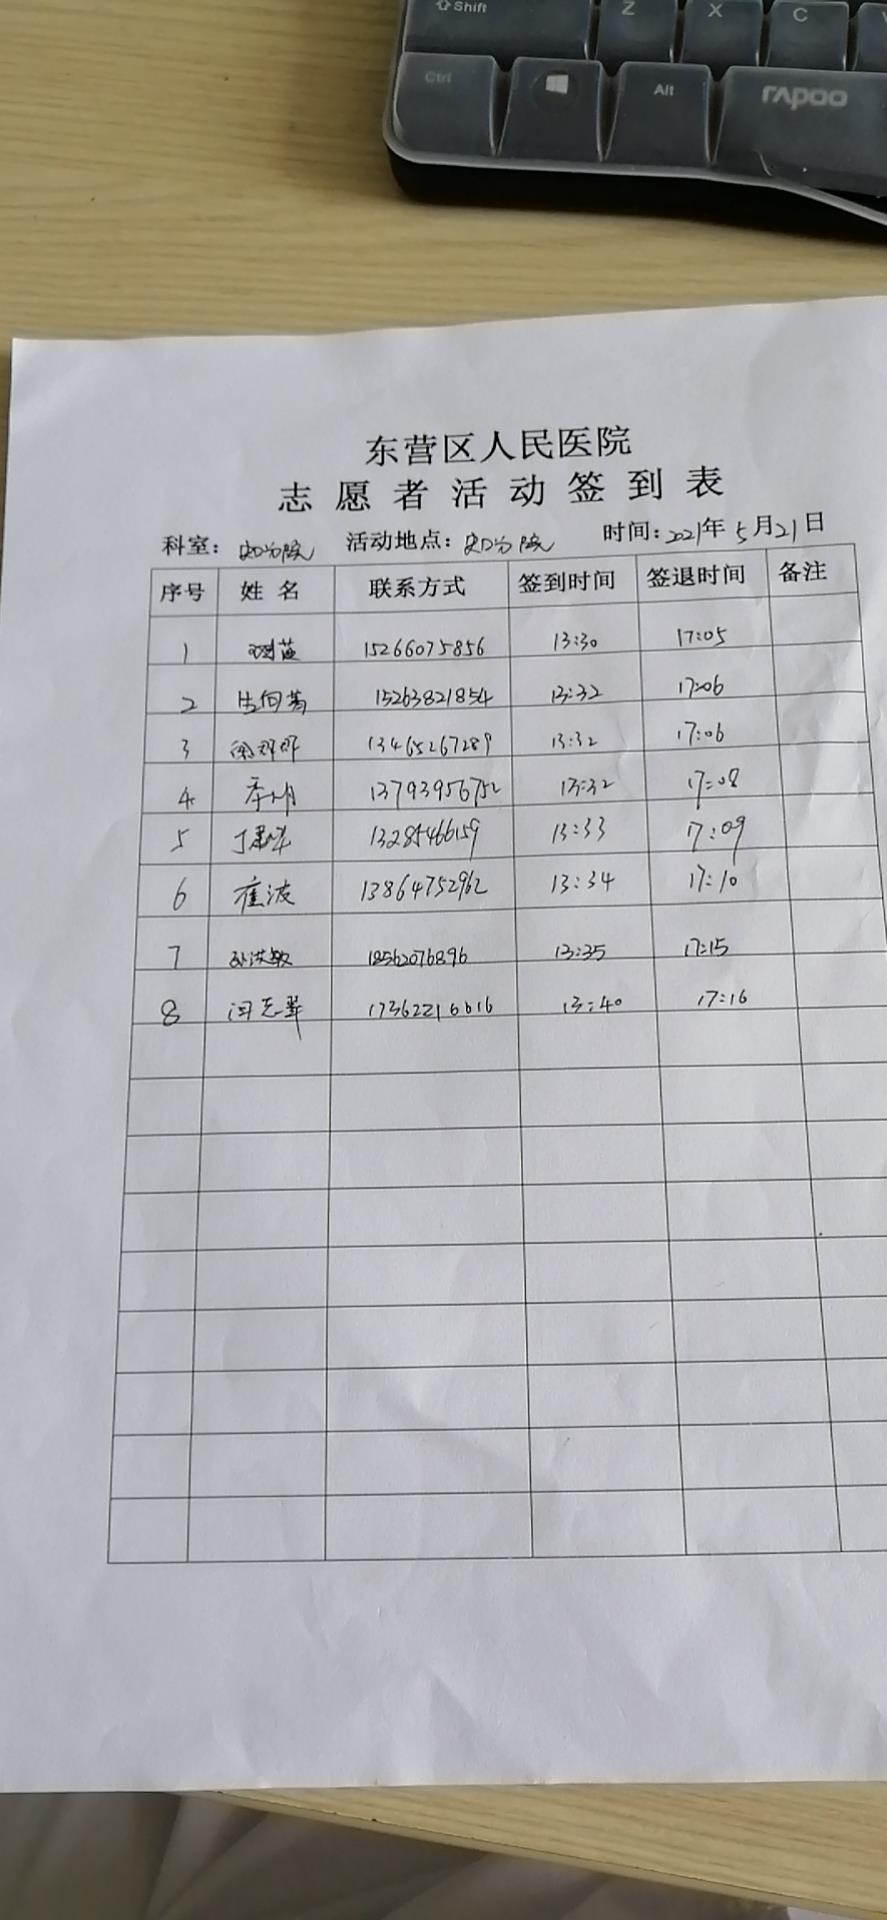 Shift Z X C
Ctrl Alt rapoo
东营区人民医院
志愿者活动签到表
科室: 史口分院 活动地点: 史口分院 时间: 2021年5月21日
序号 姓名 联系方式 签到时间 签退时间 备注
1 15266075856 13:30 17:05
2 15263821854 13:32 17:06
3 13465267289 13:32 17:06
4 13793956752 13:32 17:08
5 13285466159 13:33 17:09
6 崔波 13864752962 13:34 17:10
7 孙洪敏 18562076896 13:35 17:15
8 闫志翠 17362216616 13:40 17:16